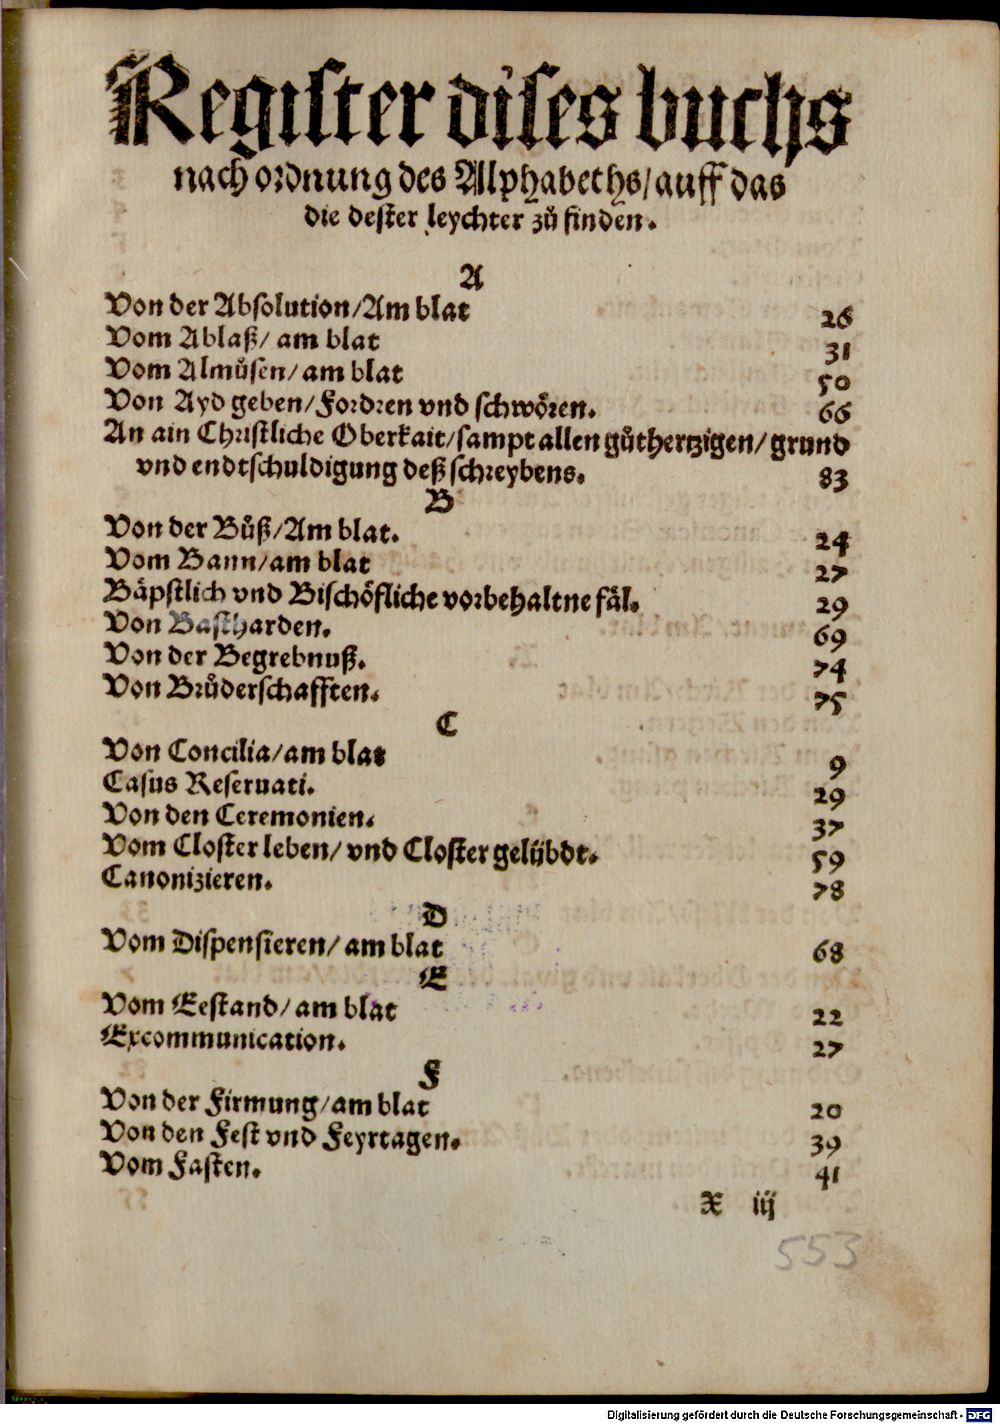 Regiſter diſes buchs
nach ordnung des Alphabeths/auff das
die deſter leychter zů finden.
A
Von der Abſolution/Am blat 26
Vom Ablaß/ am blat 31
Vom Almůſen/am blat 50
Von Ayd geben/Fordren vnd ſchwören. 66
An ain Chriſtliche Oberkait/ſampt allen gůthertzigen/grund
vnd endtſchuldigung deß ſchreybens. 83
B
Von der Bůß/Am blat. 24
Vom Bann/am blat 27
Bäpſtlich vnd Biſchöfliche vorbehaltne fäl. 29
Von Baſtharden. 69
Von der Begrebnuß. 74
Von Brůderſchafften. 75
C
Von Concilia/am blat 9
Caſus Reſeruati. 29
Von den Ceremonien. 37
Vom Cloſter leben/ vnd Cloſter gelübdt. 59
Canonizieren. 78
D
Vom Diſpenſieren/ am blat 68
E
Vom Eeſtand/ am blat 22
Excommunication. 27
F
Von der Firmung/am blat 20
Von den Feſt vnd Feyrtagen. 39
Vom Faſten. 41
X iij
553
Digitalisierung gefördert durch die Deutsche Forschungsgemeinschaft - DFG